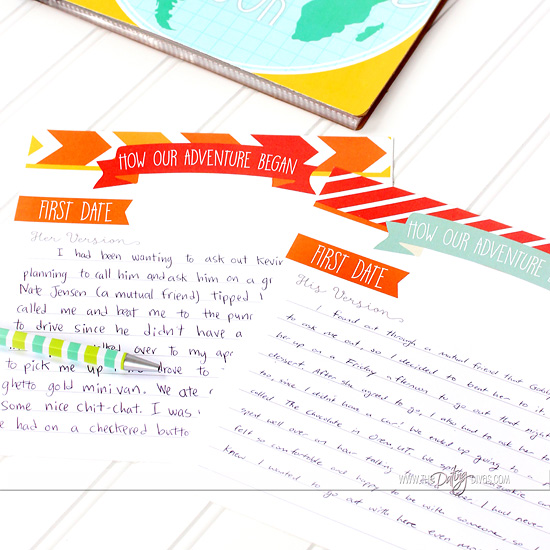 HOW OUR ADVENTURE BEGAN
FIRST DATE
Her Version
I had been wanting to ask out Kevin
planning to call him and ask him on a
Nate Jensen (a mutual friend) tipped
called me and beat me to the punc
to drive since he didn't have a
over to my ap
to pick me up drove to
ghetto gold minivan. We ate
some nice chit-chat. I was
had on a checkered butto
HOW OUR ADVENTURE
FIRST DATE
His Version
I found out through a mutual friend that
to ask me out, so I decided to beat her to it.
her up on a Friday afternoon to go out that night
dessert. After she agreed to go, I also had to ask her to
too, since I didn't have a car! We ended up going to a
called The Chocolate in Orem, UT. We
spent well over an hour talking I had never
felt so comfortable and happy to be with someone, so I
knew I wanted to go out with here even
WWW.THE Dating DIVAS.COM